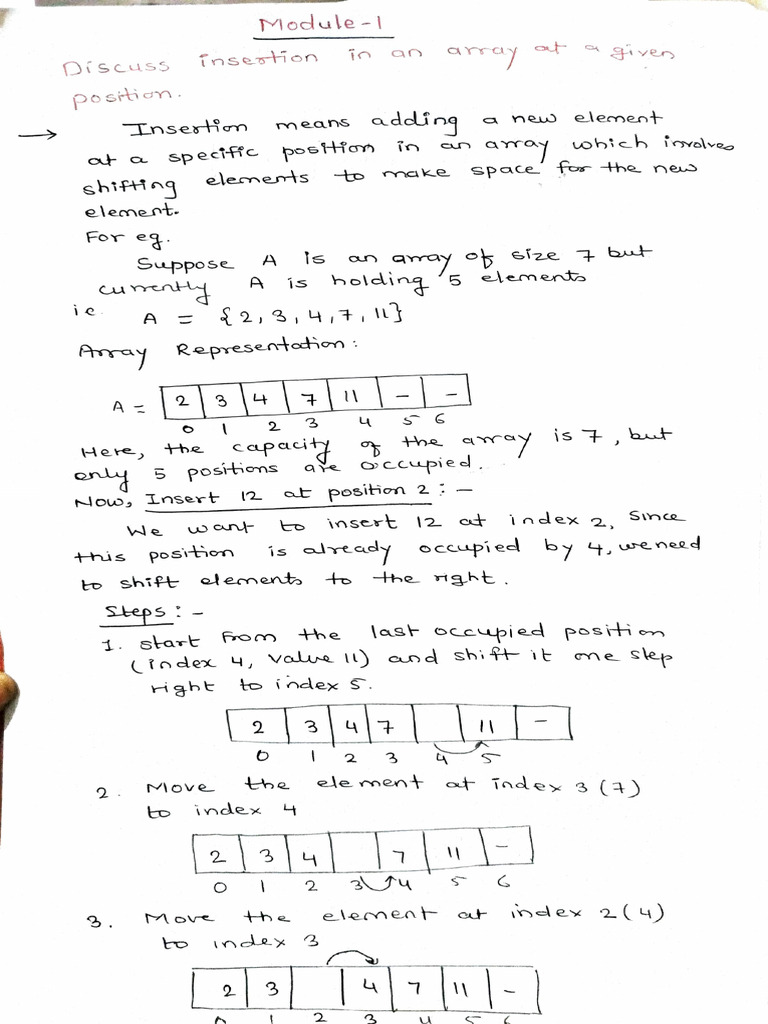 Module-1
Discuss insertion in an array at a given
position.
→ Insertion means adding a new element
at a specific position in an array which involves
shifting elements to make space for the new
element.
For eg.
Suppose A is an array of size 7 but
currently A is holding 5 elements
i.e. A = {2, 3, 4, 7, 11}
Array Representation:
A = 2 3 4 7 11 - -
0 1 2 3 4 5 6
Here, the capacity of the array is 7, but
only 5 positions are occupied.
Now, Insert 12 at position 2 : -
We want to insert 12 at index 2, since
this position is already occupied by 4, we need
to shift elements to the right.
Steps : -
1. start from the last occupied position
(index 4, value 11) and shift it one step
right to index 5.
2 3 4 7 11 -
0 1 2 3 4 5
2. Move the element at index 3 (7)
to index 4
2 3 4 7 11 -
0 1 2 3 4 5 6
3. Move the element at index 2 (4)
to index 3
2 3 4 7 11 -
0 1 2 3 4 5 6